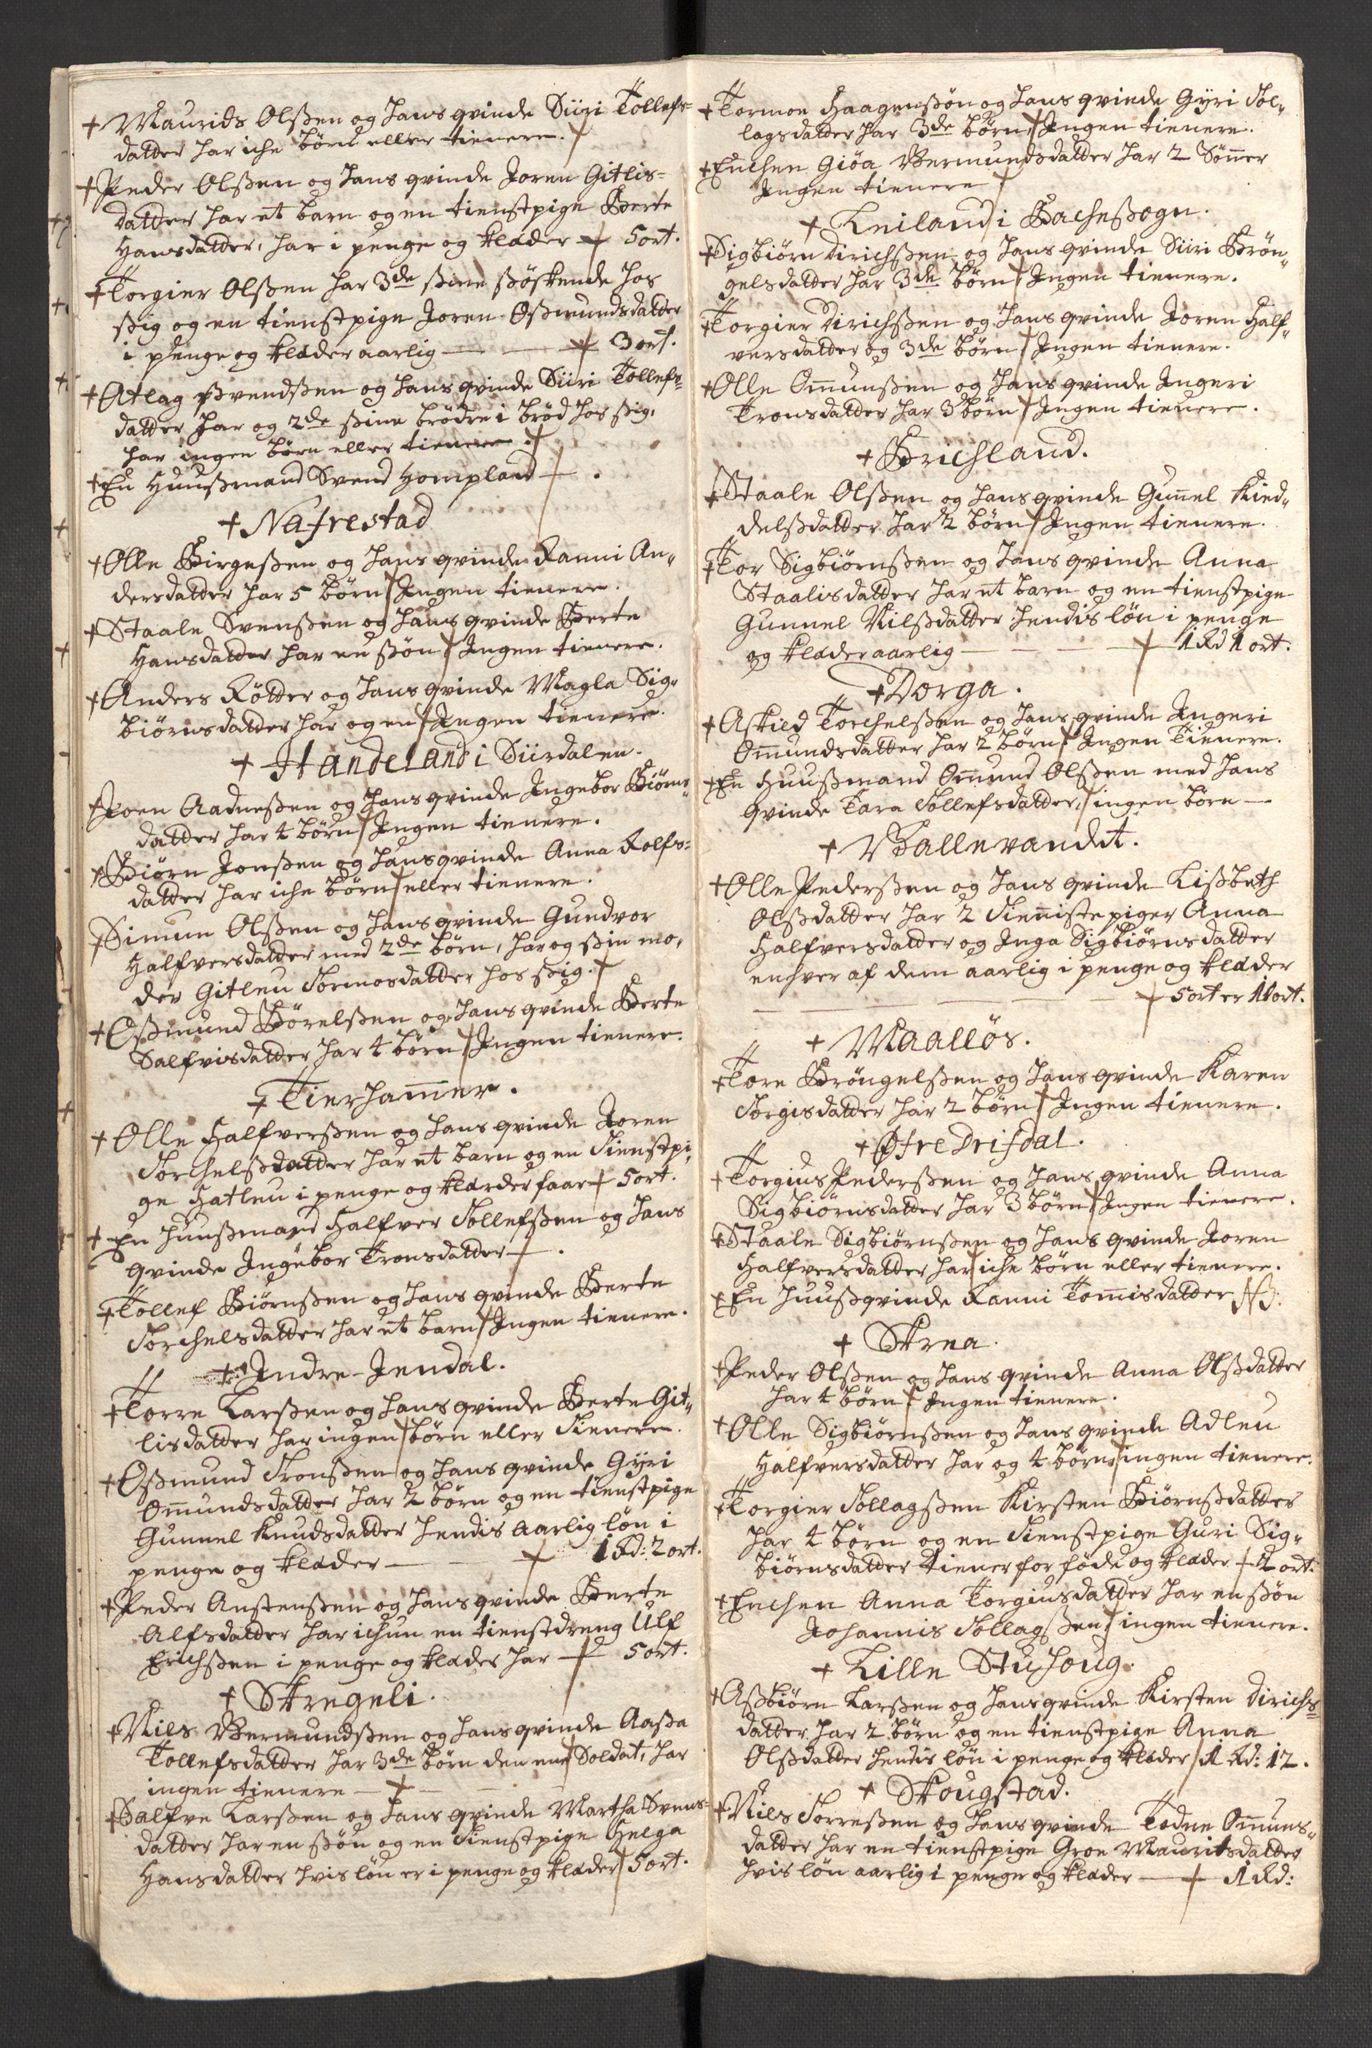 Maurids Olsßen og hans qvinde Siiri Tollefs=
datter har iche börn eller tienere.
Peder Olsßen og hans qvinde Joren Gitlis=
datter har et barn og en tienstpige Berte
Hansdatter, har i penge og klæder 5 ort.
Torgier Olsßen har 3de sine söskende hos
sig og en tienstpige Joren Oßmundsdatter
i penge og klæder aarlig — 3 ort.
Atlag Svendsßen og hans qvinde Siiri Tollefs=
datter har og 2de sine brödre i bröd hos sig,
har ingen börn eller tienere.
En Huusmand Svend Hompland
Nafrestad
Olle Birgesßen og hans qvinde Ranni An=
dersdatter har 5 börn Ingen tienere.
Staale Svensßen og hans qvinde Berte
Hansdatter har en sön Ingen tienere.
Anders Rötter og hans qvinde Magla Sig=
biörnsdatter har og en Ingen tienere.
Handeland i Siirdalen.
Joen Aadnesßen og hans qvinde Ingebor Biörns=
datter har 4 börn Ingen tienere.
Biörn Jonsßen og hans qvinde Anna Rolfs=
datter har iche börn eller tienere.
Simun Olsßen og hans qvinde Gundvor
Halfversdatter med 2de börn, har og sin mo=
der Gitleu Tormosdatter hos sig.
Oßmund Börelsßen og hans qvinde Berte
Salfvisdatter har 4 börn Ingen tienere.
Tierhammer.
Olle Halfversßen og hans qvinde Joren
Torchelsdatter har et barn og en Tienstpi=
ge Hatleu i penge og klæder faar 5 ort.
En huusmand Halfver Tollefsßen og hans
qvinde Ingebor Tronsdatter.
Tollef Biörnsßen og hans qvinde Berte
Torchelsdatter har et barn Ingen tienere.
Indre Jendal.
Torre Larsßen og hans qvinde Berte Git=
lisdatter har ingen börn eller Tienere.
Oßmund Tronsßen og hans qvinde Gyri
Ommundsdatter har 2 börn og en tienstpige
Gunnel Knudsdatter hendis aarlig lön i
penge og klæder — 1 Rd: 2 ort.
Peder Anstensßen og hans qvinde Berte
Alfsdatter har ichun en tienstdreng Ulf
Erichsßen i penge og klæder har — 5 ort.
Skregeli.
Niels Vermundsßen og hans qvinde Aasa
Tollefsdatter har 3de börn den ene Soldat, har
ingen tienere —
Salfve Larsßen og hans qvinde Martha Svens=
datter har en sön og en Tienstpige Helga
Hansdatter hvis lön er i penge og klæder 5 ort.
Tormoe Haagensßön og hans qvinde Gyri Sol=
lagsdatter har 3de börn Ingen tienere.
Enchen Giöa Vermundsdatter har 2 Sönner
Ingen tienere
Leiland i Bachesogn.
Sigbiörn Dirichsßen og hans qvinde Siiri Brön=
gelsdatter har 3de börn Ingen tienere.
Torgier Dirichsßen og hans qvinde Joren Half=
versdatter og 3de börn Ingen tienere.
Olle Ommunsßen og hans qvinde Ingeri
Tronsdatter har 3 börn Ingen tienere.
Brichland.
Staale Olsßen og hans qvinde Gunnel Kied=
delsdatter har 2 börn Ingen tienere.
Tor Sigbiörnsßen og hans qvinde Anna
Staalisdatter har et barn og en tienstpige
Gunnel Nilsdatter hendis lön i penge
og klæder aarlig — 1 Rd 1 ort.
Dorga.
Askild Torchelsßen og hans qvinde Ingeri
Ommundsdatter har 2 börn Ingen Tienere.
En huusmand Ommund Olsßen med hans
qvinde Tara Tollefsdatter, ingen börn —
Ballevandet.
Olle Pedersßen og hans qvinde Lisbeth
Olsdatter har 2 Tienniste piger Anna
Halfversdatter og Inga Sigbiörnsdatter
enhver af dem aarlig i penge og klæder
5 ort er 10 ort.
Maallös.
Tore Bröngelsßen og hans qvinde Karen
Torgisdatter har 2 börn Ingen tienere.
Öfre Drifdal.
Torgius Pedersßen og hans qvinde Anna
Sigbiörnsdatter har 3 börn Ingen tienere.
Staale Sigbiörnsßen og hans qvinde Joren
Halfversdatter har iche börn eller tienere.
En huusqvinde Ranni Tomisdatter NB.
Skrea.
Peder Olsßen og hans qvinde Anna Olsdatter
har 4 börn Ingen tienere.
Olle Sigbiörnsßen og hans qvinde Adleu
Halfversdatter har og 4 börn ingen tienere.
Torgier Sollagsßen Kirsten Biörnsdatter
har 4 börn og en Tienstpige Guri Sig=
biörnsdatter tiener for föde og klæder 4 ort.
Enchen Anna Torgiusdatter har en sön
Johannis Sollagsßen ingen tienere.
Lille Stuhoug.
Asbiörn Larsßen og hans qvinde Kirsten Dirichs=
datter har 2 börn og en tienstpige Anna
Olsdatter hendis lön i penge og klæder 1 Rd: 12.
Skougstad.
Niels Torresßen og hans qvinde Todne Ommuns=
datter har en tienstpige Groe Mauritsdatter
hvis lön aarlig i penge og klæder — 1 Rd: